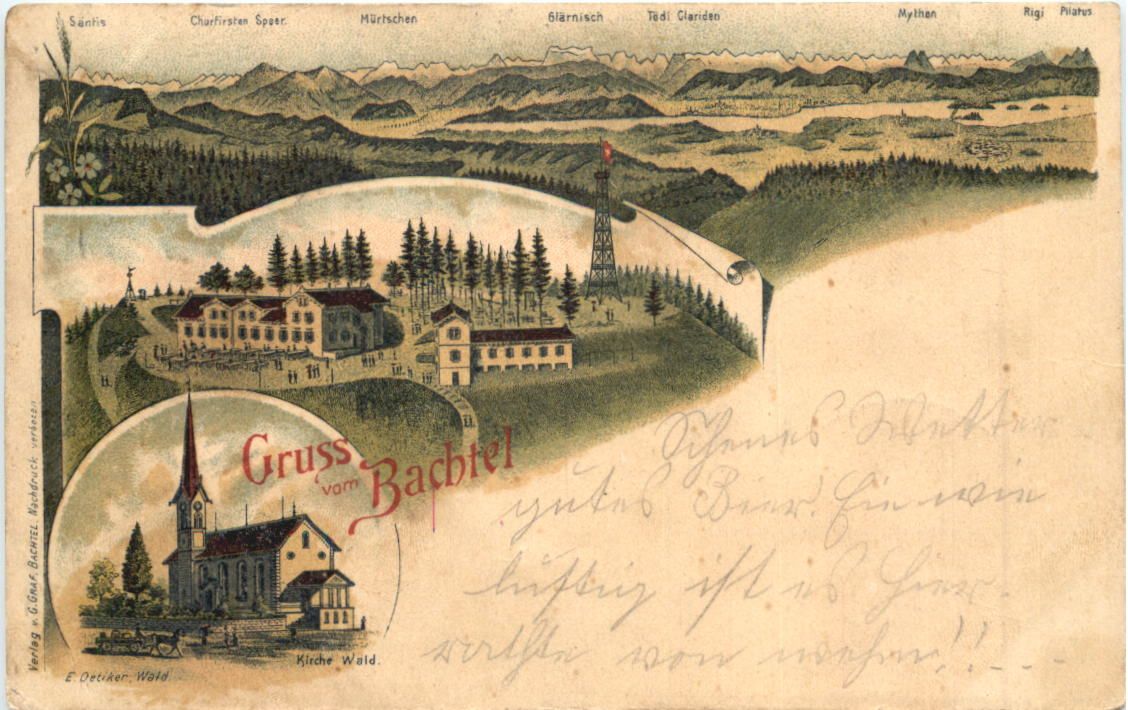 Säntis Churfirsten Speer. Mürtschen Glärnisch Tödi Clariden Mythen Rigi Pilatus
Gruss
vom Bachtel
Kirche Wald.
E. Oetiker, Wald.
Verlag v. G. GRAF, BACHTEL. Nachdruck verboten
Schönes Wetter
gutes Bier. Ei wie
luftig ist es hier.
rathe von wehm!! - - -